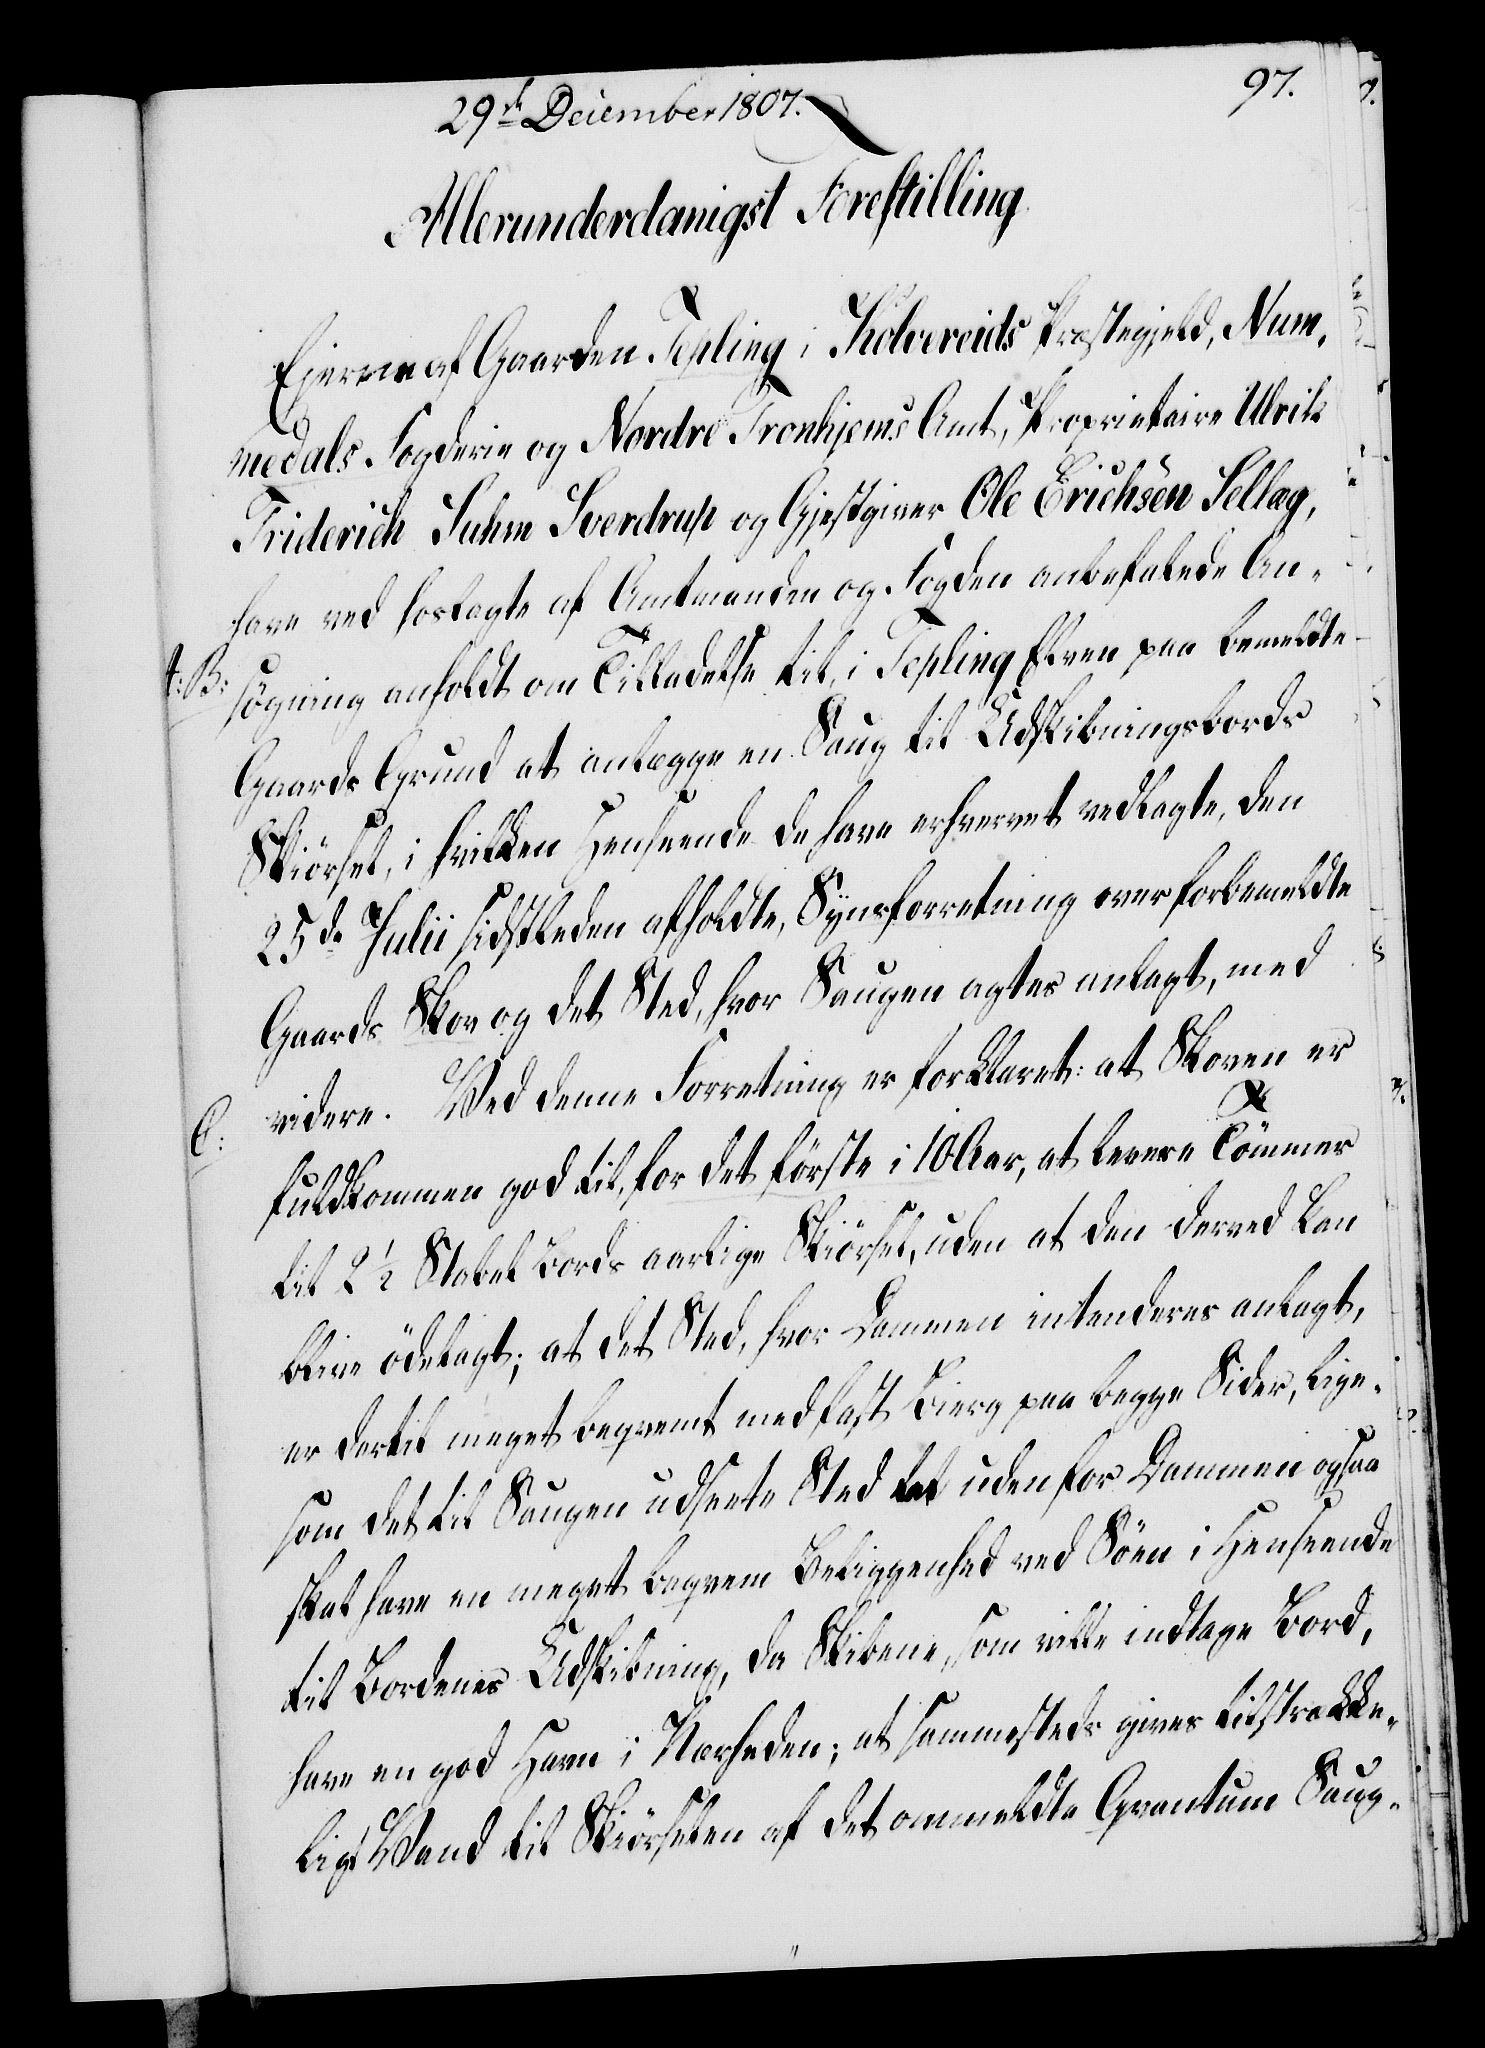 29de December 1807.
97.
Allerunderdanigst Forestilling
Ejerne af Gaarden Tepling i Kolvereids Præstegjeld, Num,
medals Fogderie og Nordre Tronhjems Amt, Proprietaire Ulrik
Friderich Suhm Sverdrup og Gjestgiver Ole Erichsen Sellæg,
have ved hoslagte af Amtmanden og Fogden anbefalede An-
A: B:
søgning anholdt om Tilladelse til, i Tepling Elven paa bemeldte
Gaards Grund at anlægge en Saug til Udskibningsbords
Skiørsel, i hvilken Henseende de have erhvervet vedlagte, den
25de Julii sidstleden afholdte, Synsforretning over forbemeldte
Gaards Skov og det Sted, hvor Saugen agtes anlagt, med
C:
videre. Ved denne Forretning er forklaret: at Skoven er
fuldkommen god til, for det første i 10 Aar, at levere Tømmer
til 2½ Stabel Bords aarlige Skiørsel, uden at den derved kan
blive ødelagt; at det Sted, hvor Dammen intenderes anlagt,
er dertil meget beqvemt med fast Bierg paa begge Sider, lige-
som det til Saugen udseete Sted tæt uden for Dammen ogsaa
skal have en meget beqvem Beliggenhed ved Søen i Henseende
til Bordenes Udskibning, da Skibene, som ville indtage Bord,
have en god Havn i Nærheden; at sammesteds gives tilstrække-
ligt Vand til Skiørselen af det ommeldte Qvantum Saug-